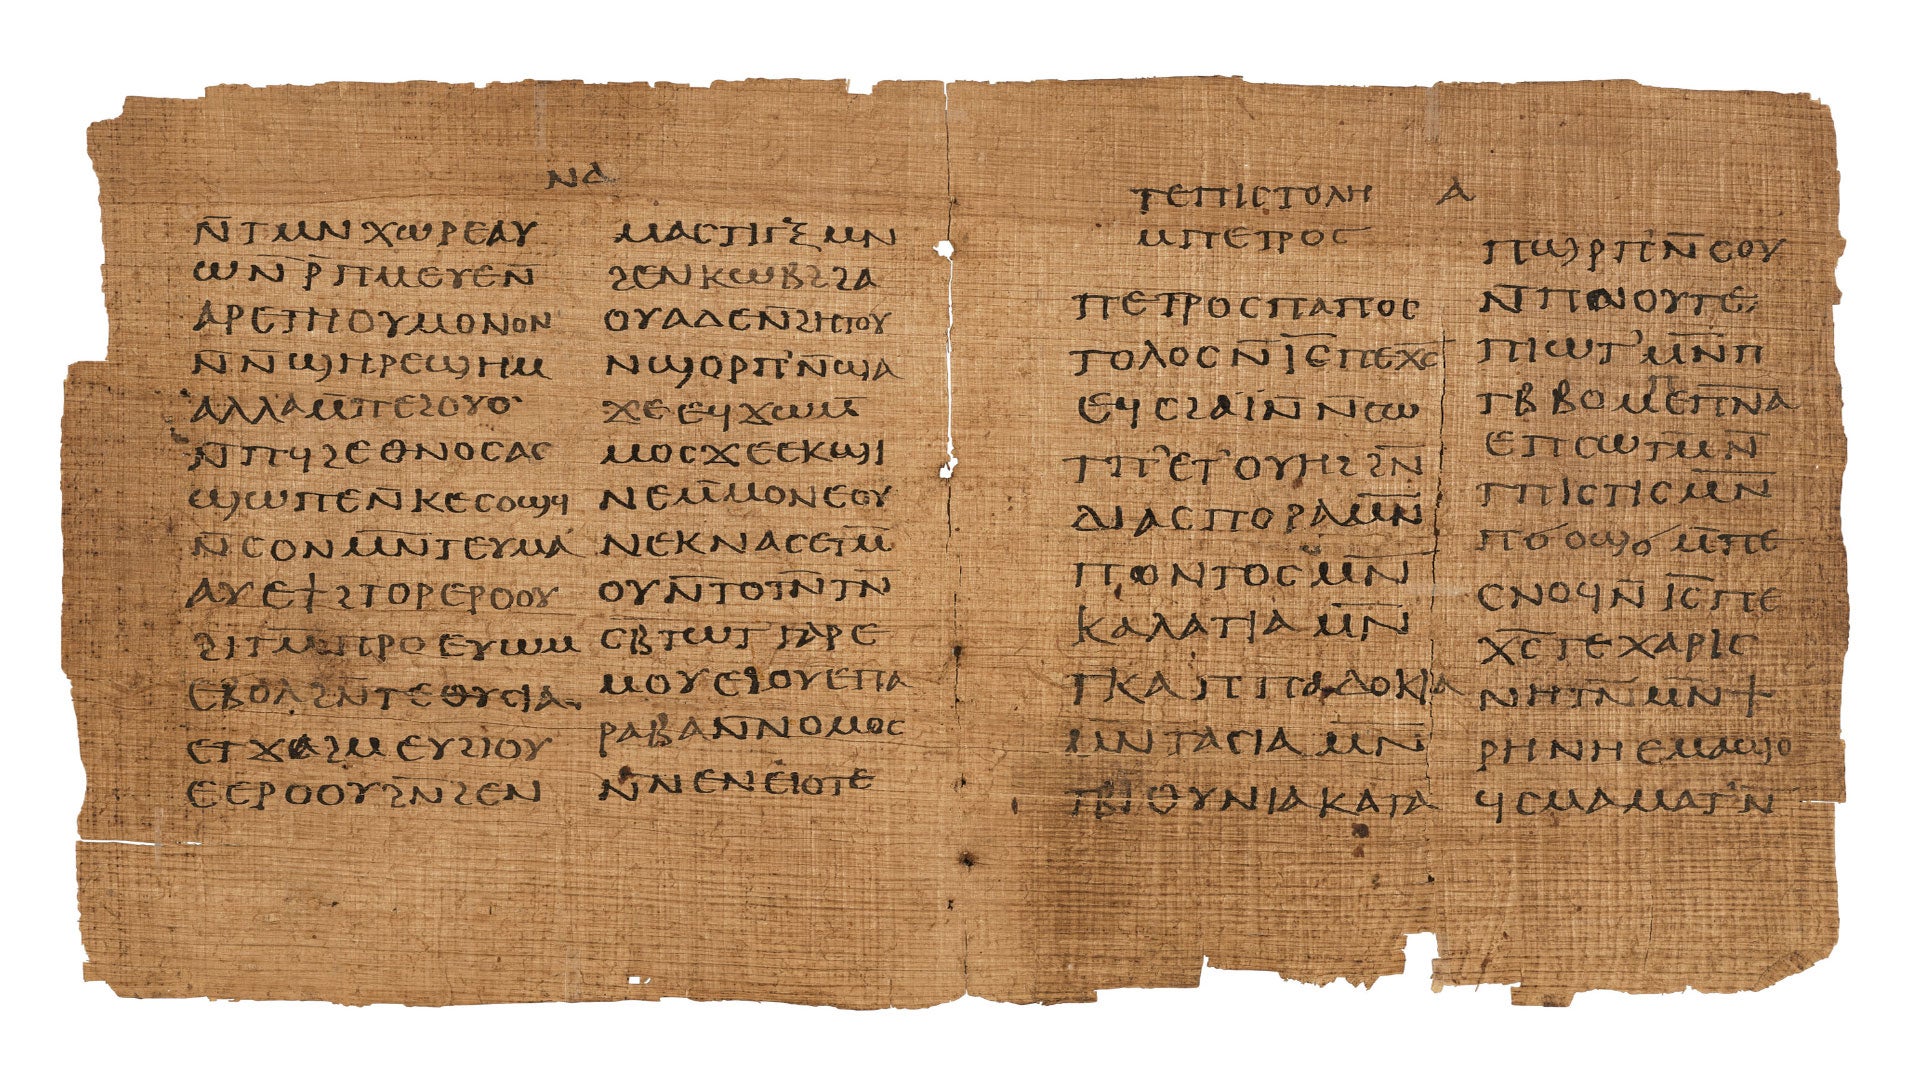 ⲛⲁ
ⲛ̄ⲧⲙⲛⲭⲱⲣⲉⲁⲩ
ⲱⲛ ⲣ̄ⲡⲙⲉⲩⲉⲛ̄
ⲁⲣⲉⲧⲏⲟⲩⲙⲟⲛⲟⲛ
ⲛ̄ⲛϣⲏⲣⲉϣⲏⲙ
ⲁⲗⲗⲁⲙ̄ⲡⲉϩⲟⲩⲟ
ⲛ̄ⲡϥϩⲉⲑⲛⲟⲥⲁⲥ
ϣⲱⲡⲉⲛ̄ⲕⲉⲥⲟϣϥ
ⲛ̄ⲥⲟⲛⲙⲛ̄ⲧⲉⲩⲙⲁ
ⲁⲩⲉϯϩⲧⲟⲣⲉⲣⲟⲟⲩ
ϩⲓⲧⲙ̄ⲡⲣⲟⲉⲩⲱⲙ
ⲉⲃⲟⲗϩⲛ̄ⲧⲉⲑⲩⲥⲓⲁ
ⲉⲧϫⲁϩⲙⲉⲩϩⲓⲟⲩ
ⲉⲉⲣⲟⲟⲩϩⲛ̄ϩⲉⲛ
ⲙⲁⲥⲧⲓⲅⲝⲙⲛ
ϩⲉⲛⲕⲱⲃϩϩⲁ
ⲟⲩⲁⲇⲉⲛ̄ϩⲏⲧⲟⲩ
ⲛϣⲟⲣⲡ’ⲛ̄ϣⲁ
ϫⲉⲉϥϫⲱⲙ̄
ⲙⲟⲥϫⲉⲉⲕϣⲓ
ⲛⲉⲙ̄ⲙⲟⲛⲉⲟⲩ
ⲛⲉⲕⲛⲁⲥⲉⲧⲙ̄
ⲟⲩⲛ̄ⲧⲟⲧⲛ̄ⲧⲛ̄
ⲥⲃ̄ⲧⲱⲧ’ⲅⲁⲣⲉ
ⲙⲟⲩⲉϩⲟⲩⲉⲡⲁ
ⲣⲁⲃⲁⲛ̄ⲛⲟⲙⲟⲥ
ⲛ̄ⲛⲉⲛⲉⲓⲟⲧⲉ
ⲧⲉⲡⲓⲥⲧⲟⲗⲏ ⲁ
ⲙⲡⲉⲧⲣⲟⲥ
ⲡⲉⲧⲣⲟⲥⲡⲁⲡⲟⲥ
ⲧⲟⲗⲟⲥⲛ̄ⲓ̄ⲥ̄ⲡⲉⲭ̄ⲥ̄
ⲉϥⲥϩⲁⲓ̈ⲛ̄ⲛ̄ⲥⲱ
ⲧⲡ’ⲉⲧ’ⲟⲩⲏϩϩⲛ̄
ⲇⲓⲁⲥⲡⲟⲣⲁⲙⲛ̄
ⲡⲟⲛⲧⲟⲥⲙⲛ̄
ⲕⲁⲗⲁⲧⲓⲁⲙⲛ̄
ⲧⲕⲁⲡⲡⲁⲇⲟⲕⲓⲁ
ⲙⲛ̄ⲧⲁⲥⲓⲁⲙⲛ̄
ⲧⲃⲓⲑⲩⲛⲓⲁⲕⲁⲧⲁ
ⲡϣⲣⲡ’ⲛ̄ⲥⲟⲩ
ⲛ̄ⲡⲛⲟⲩⲧⲉ
ⲡⲓⲱⲧ’ⲙⲛ̄ⲡ
ⲧⲃⲃⲟⲙⲡⲉⲡ̄ⲛ̄ⲁ̄
ⲉⲡⲥⲱⲧⲙ̄ⲛ̄
ⲧⲡⲓⲥⲧⲓⲥⲙⲛ̄
ⲡϭⲟϣϭ’ⲙ̄ⲡⲉ
ⲥⲛⲟϥⲛ̄ⲓ̄ⲥ̄ⲡⲉ
ⲭ̄ⲥ̄ⲧⲉⲭⲁⲣⲓⲥ
ⲛⲏⲧⲛ̄ⲙⲛ̄ϯ
ⲣⲏⲛⲏⲉⲙⲁϣⲟ
ϥⲥⲙⲁⲙⲁⲁⲧ’ⲛ̄